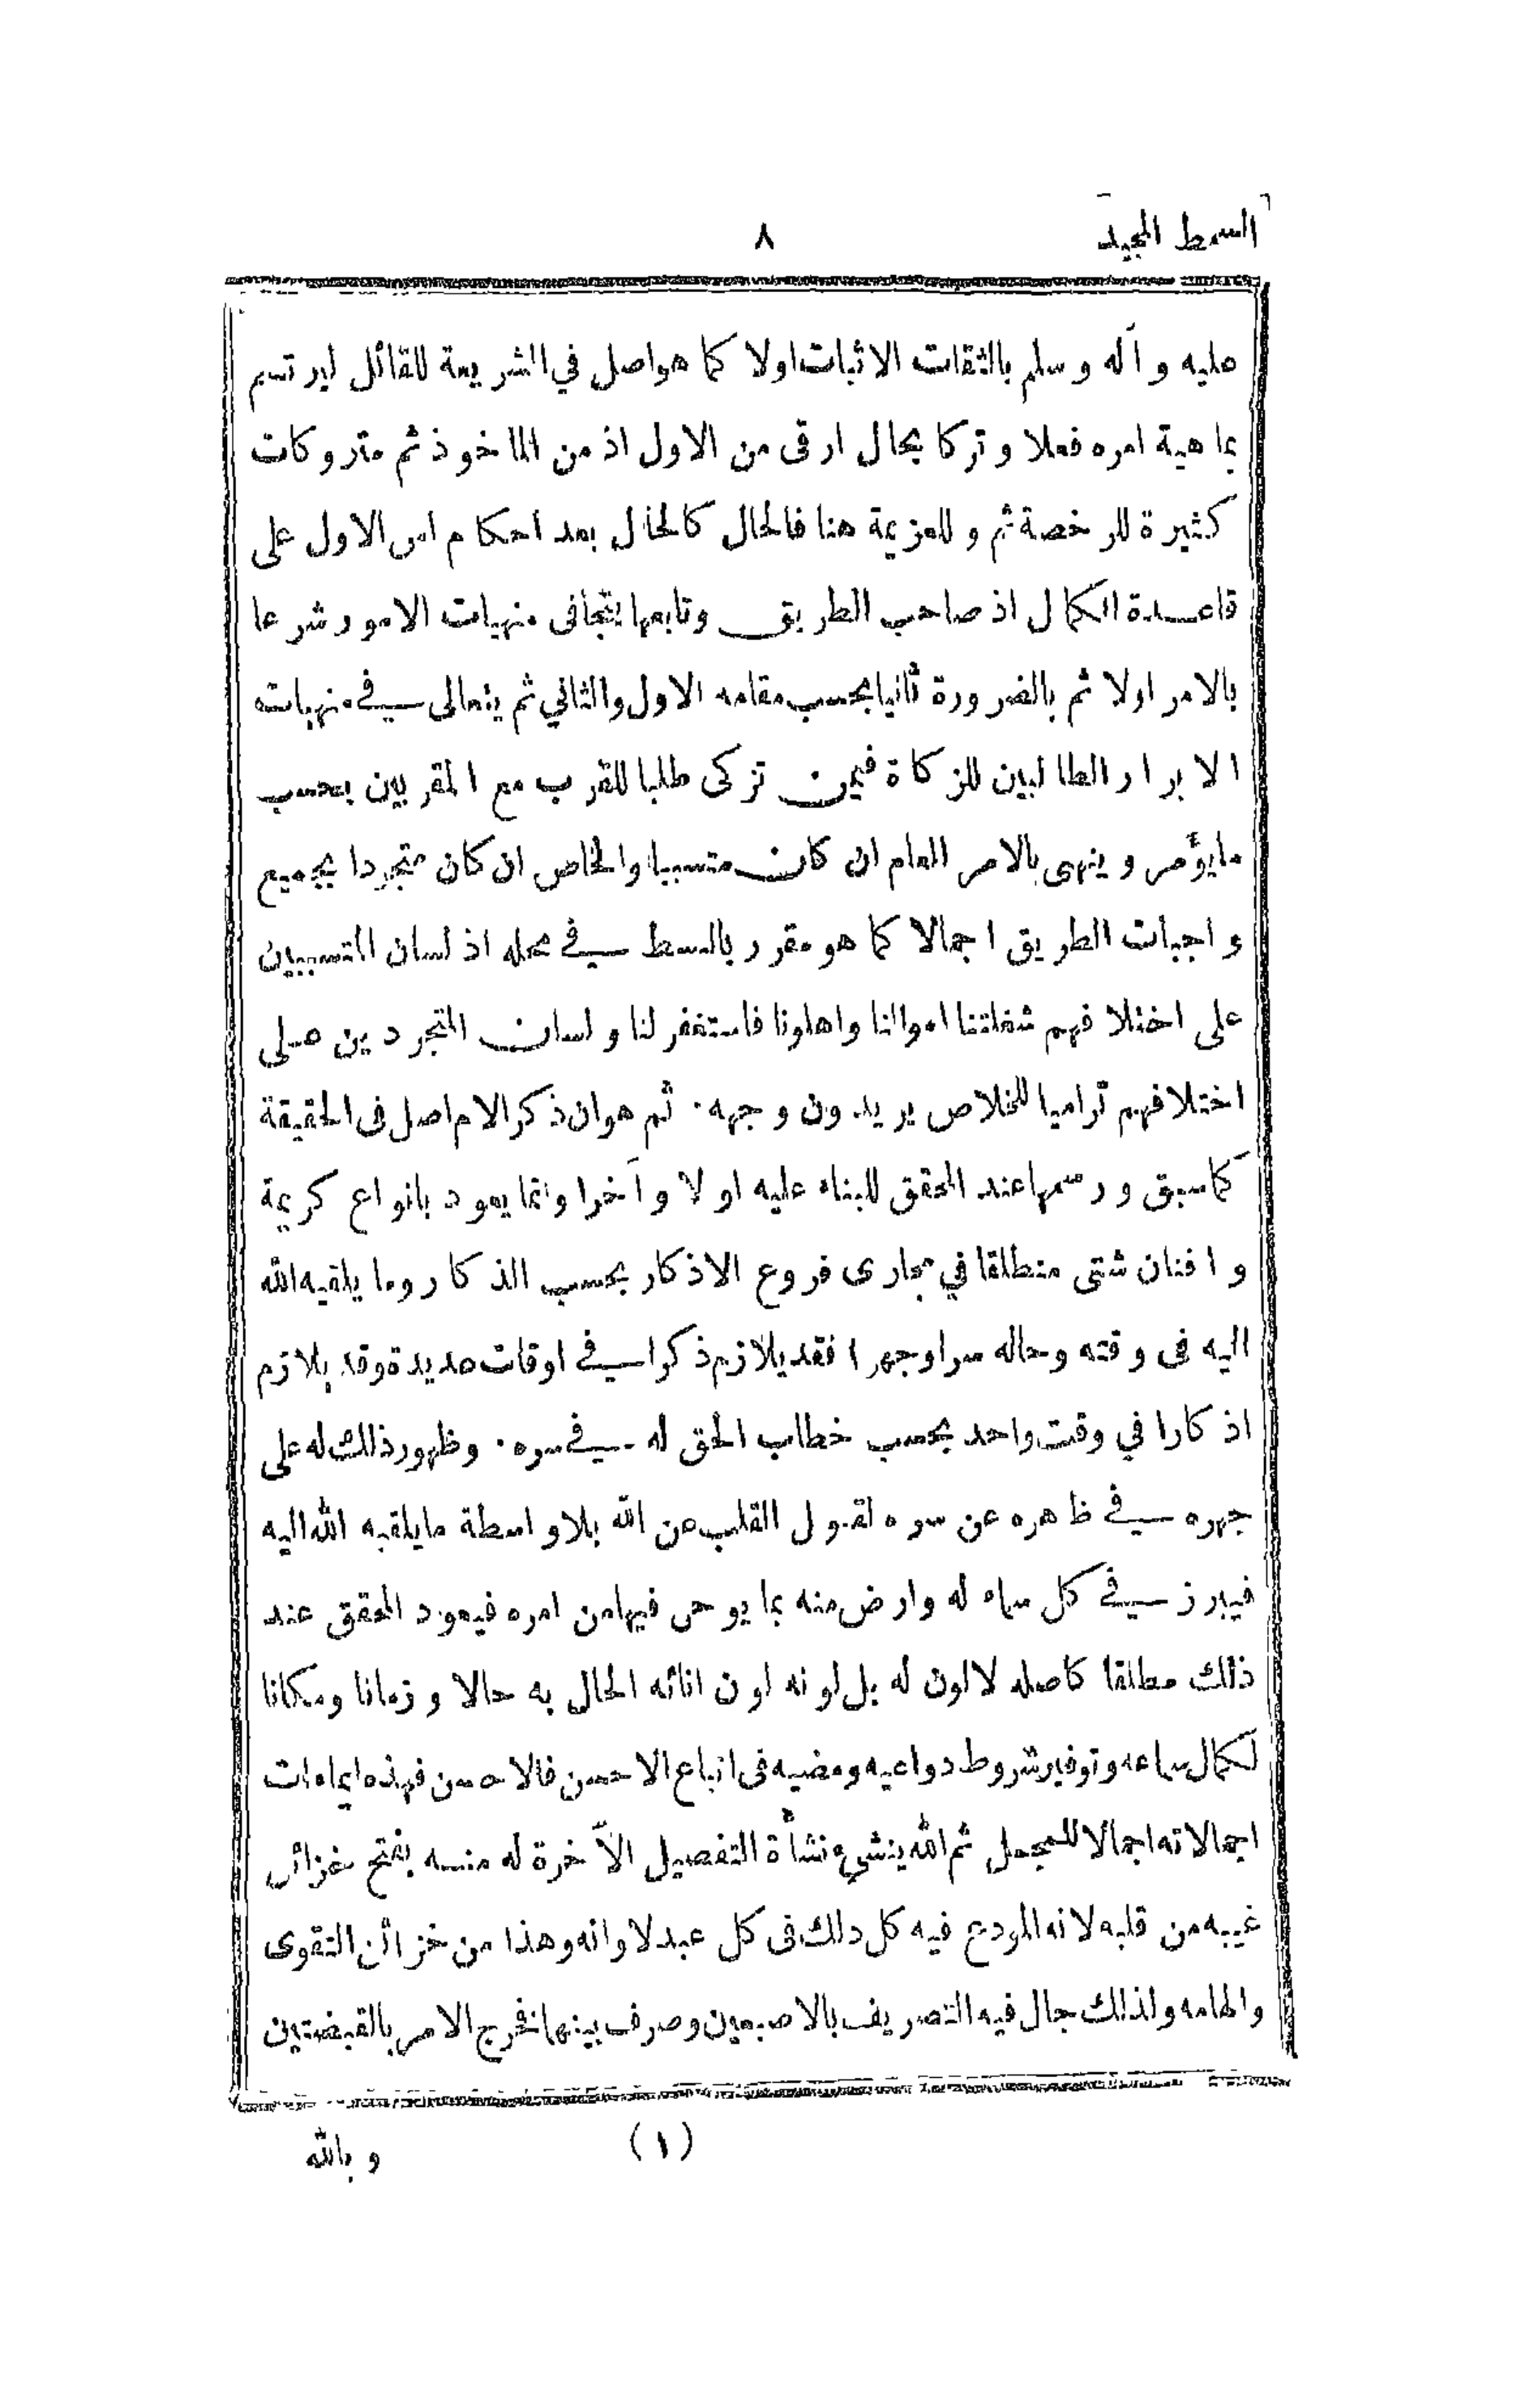 السمط المجيد
٨
عليه وآله وسلم بالثقات الاثبات اولا كما هو اصل في الشريعة للقائل ليرتسم
بما هية امره فعلا و تركا بحال ارقى من الاول اذ من الماخوذ ثم متروكات
كثيرة للرخصة ثم و للعزيمة هنا فالحال كالحال بعد احكام امر الاول على
قاعدة الكمال اذ صاحب الطريق وتابعها يتجافى منهيات الامور شرعا
بالامر اولا ثم بالضرورة ثانيا بحسب مقامه الاول والثاني ثم يتعالى في منهيات
الابرار الطالبين للزكاة فيمن تزكى طلبا للقرب مع المقربين بحسب
مايؤمر و ينهى بالامر العام ان كان متسببا والخاص ان كان متجردا بجميع
واجبات الطريق اجمالا كما هو مقرر بالبسط في محله اذ لسان المتسببين
على اختلا فهم شغلتنا اموالنا واهلونا فاستغفر لنا ولسان المتجردين على
اختلافهم تراميا للخلاص يريدون وجهه · ثم هو ان ذكر الام اصل فى الحقيقة
كما سبق ورسمها عند المحقق للبناء عليه اولا وآخرا وانما يعود بانواع كريمة
وافنان شتى منطلقا في مجارى فروع الاذكار بحسب الذكار وما يلقيه الله
اليه فى وقته وحاله سرا وجهرا فقد يلازم ذكرا في اوقات عديدة وقد يلازم
اذكارا في وقت واحد بحسب خطاب الحق له في سره · وظهور ذلك له على
جهره في ظاهره عن سره لقول القلب عن الله بلا واسطة ما يلقيه الله اليه
فيبرز في كل سماء له وارض منه بما يوحى فيها من امره فيعود المحقق عند
ذلك مطلقا كاصله لا لون له بل لونه لون انائه الحال به حالا وزمانا ومكانا
لكمال سماعه وتوفير شروط دواعيه ومضيه فى اتباع الاحسن فالاحسن فهذه ايماءات
اجمالاته اجمالا للمجمل ثم الله ينشئ نشأة التفصيل الآخرة له منه بفتح خزائن
غيبه من قلبه لانه المودع فيه كل ذلك فى كل عبد لاوانه وهذا من خزائن التقوى
والهامه ولذلك جال فيه التصريف بالاصبعين وصرف بينها فخرج الامر بالقبضتين
(١)
و بالله